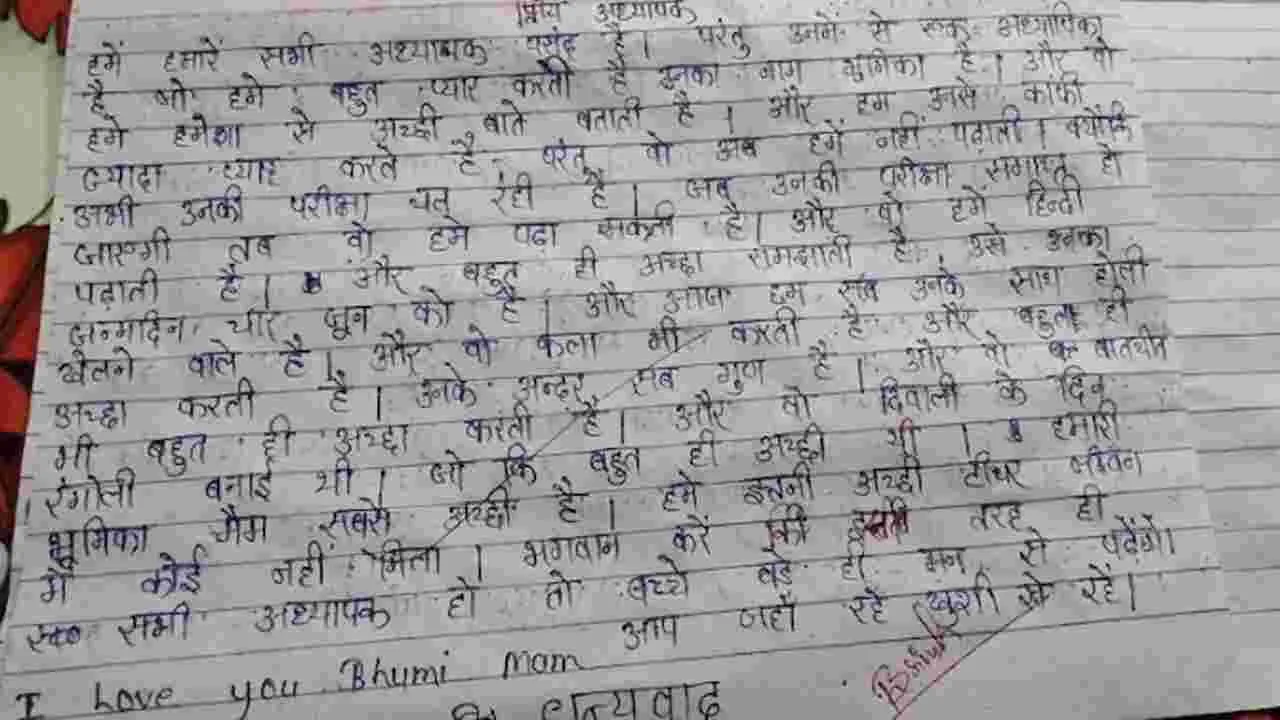 प्रिय अध्यापक
हमें हमारें सभी अध्यापक पसंद है। परंतु उनमें से एक अध्यापिका
है जो हमे बहुत प्यार करती है उनका नाम भुमिका है। और वो
हमे हमेशा से अच्छी बाते बताती है। और हम उनसे काफी
ज्यादा प्यार करते है परंतु वो अब हमें नहीं पढ़ाती। क्योंकि
अभी उनकी परीक्षा चल रही है। जब उनकी परीक्षा समाप्त हो
जाएगी तब वो हमे पढ़ा सकती है। और वो हमें हिन्दी
पढ़ाती है। और बहुत ही अच्छा समझाती है उसे उनका
जन्मदिन चार जुन को है। और आज हम सब उनके साथ होली
खेलने वाले है। और वो कला भी करती है और बहुत ही
अच्छा करती है। उनके अन्दर सब गुण है। और वो बातचीत
भी बहुत ही अच्छा करती है। और वो दिवाली के दिन
रंगोली बनाई थी। जो कि बहुत ही अच्छी थी। हमारी
भूमिका मैम सबसे अच्छी है। हमे इतनी अच्छी टीचर जीवन
में कोई नहीं मिला। भगवान करें की इसी तरह ही
सभी अध्यापक हो तो बच्चे बड़े ही मन से पढ़ेंगे।
आप जहाँ रहे खुशी से रहें।
I Love you Bhumi mam
धन्यवाद